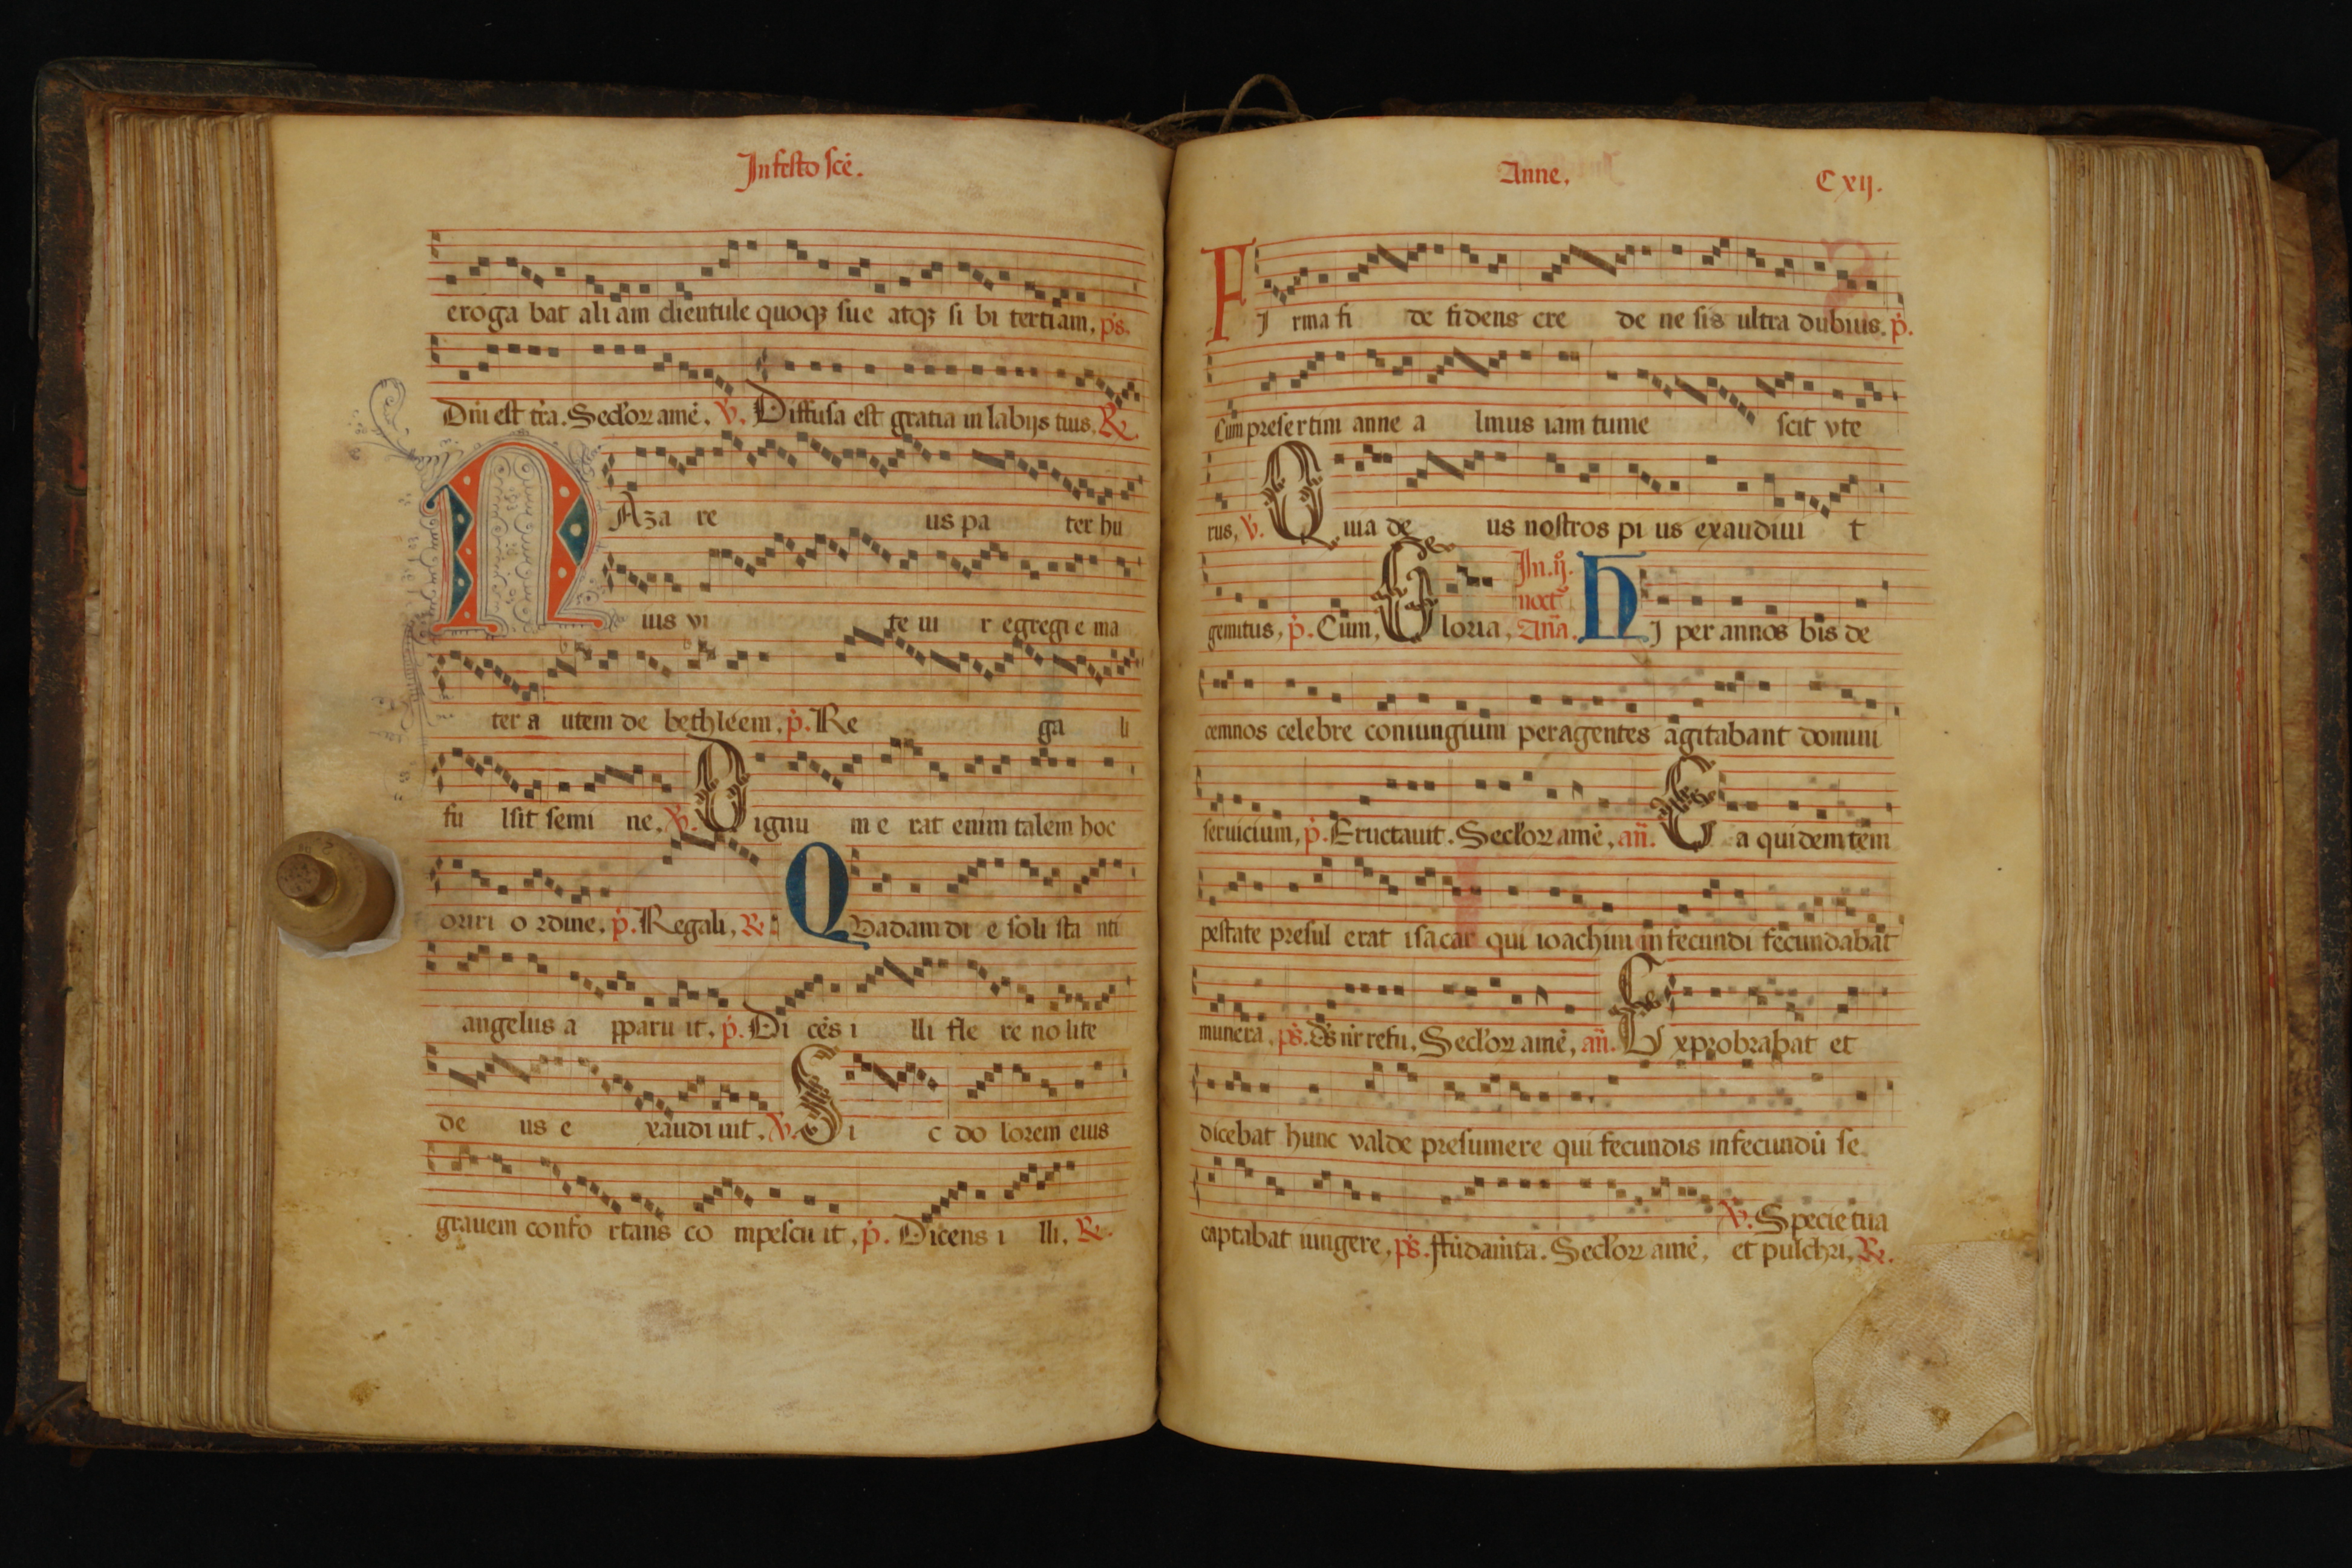 In festo sce̅.
eroga bat ali am clientule quoqꝫ sue atqꝫ si bi tertiam. ps.
Dn̅i est tr̅a. Seclo̅ꝝ ame̅. ℣. Diffusa est gratia in labijs tuis. ℟.
NAza re us pa ter hu
ius vi te ui r egregi e ma
ter a utem de bethleem. p̅. Re ga li
fu lsit semi ne. ℣. Dignu m e rat enim talem hoc
oriri o rdine. p̅. Regali. ℟.
Quadam di e soli sta nti
angelus a pparu it. p̅. Di ce̅s i lli fle re no lite
de us e xaudi uit. ℣. Si c do lorem eius
grauem confo rtans co mpescu it. p̅. Dicens i lli. ℟.
Anne. Cxij.
FI rma fi de fidens cre de ne sis ultra dubius. p̅.
Cum presertim anne a lmus iam tume scit vte
rus. ℣. Quia de us nostros pi us exaudiui t
gemitus. p̅. Cum. Gloria. In .ij. noct̅ an̅a. HI per annos bis de
cemnos celebre coniungium peragentes agitabant domini
seruicium. p̅. Eructauit. Seclo̅ꝝ ame̅. an̅. Ea quidem tem
pestate presul erat isacar qui ioachim infecundi fecundabat
munera. ps. d̅s n̅r refu. Seclo̅ꝝ ame̅. an̅. Exprobrabat et
dicebat hunc valde presumere qui fecundis infecundu̅ se
captabat iungere. ps. ffu̅dam̅ta. Seclo̅ꝝ ame̅. ℣. Specie tua
et pulchri. ℟.